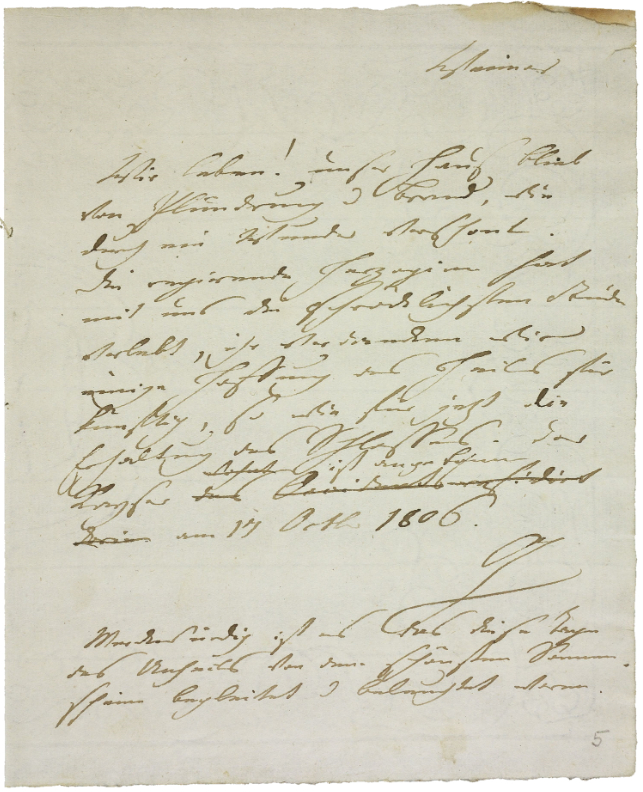 Weimar
Wir leben! unser Haus blieb
von Plünderung u Brand, wie
durch ein Wunder verschont.
die regierende Herzoginn hat
mit uns die schrecklichsten Stunden
verlebt, ihr verdancken wir
einige Hoffnung des Heils für
künftig, so wie für jetzt die
Erhaltung des Schlosses. Der
Kayser ist angekommen
am 17 Octbr 1806.
G
Merckwürdig ist es das diese Tage
des Unheils von dem schönsten Sonnen-
schein begleitet u beleuchtet waren.
5